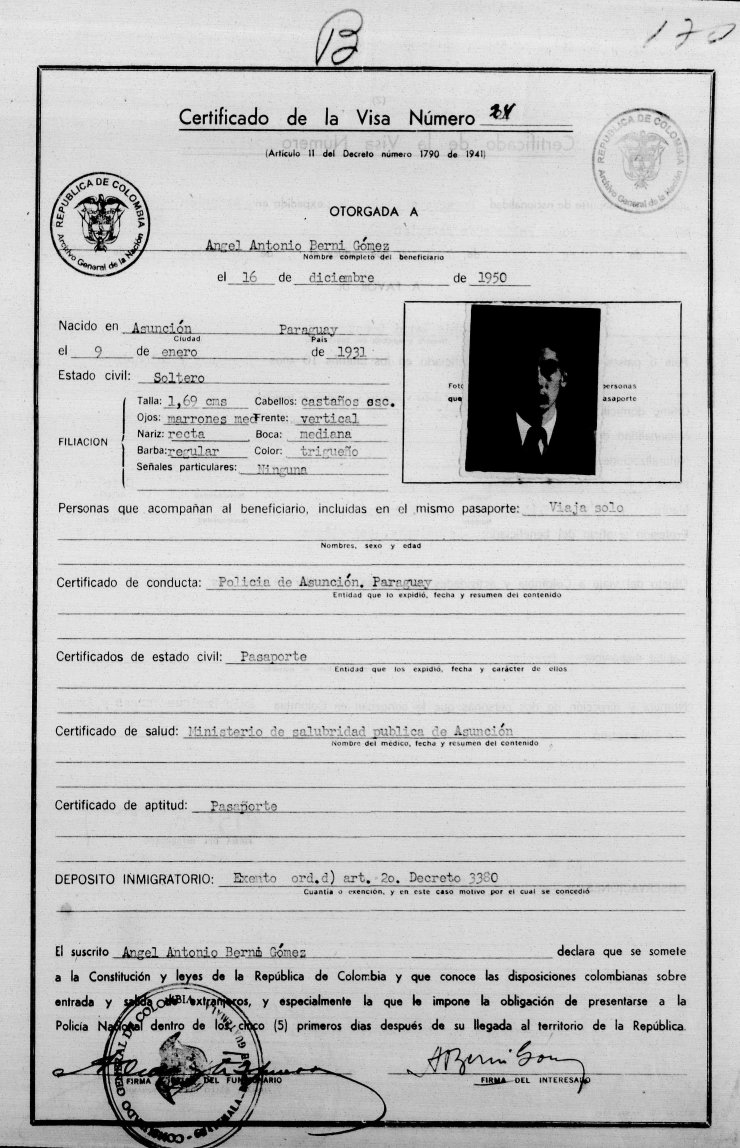 B
170
Certificado de la Visa Número 24
(Artículo 11 del Decreto número 1790 de 1941)
REPUBLICA DE COLOMBIA
Archivo General de la Nación
REPUBLICA DE COLOMBIA
Archivo General de la Nación
OTORGADA A
Angel Antonio Berni Gómez
Nombre completo del beneficiario
el 16 de diciembre de 1950
Nacido en Asunción Paraguay
Ciudad País
el 9 de enero de 1931
Estado civil: Soltero
FILIACION
Talla: 1,69 cms Cabellos: castaños osc.
Ojos: marrones med Frente: vertical
Nariz: recta Boca: mediana
Barba: regular Color: trigueño
Señales particulares: Ninguna
Foto personas
que asaporte
Personas que acompañan al beneficiario, incluidas en el mismo pasaporte: Viaja solo
Nombres, sexo y edad
Certificado de conducta: Policia de Asunción, Paraguay
Entidad que lo expidió, fecha y resumen del contenido
Certificados de estado civil: Pasaporte
Entidad que los expidió, fecha y carácter de ellos
Certificado de salud: Ministerio de salubridad publica de Asunción
Nombre del médico, fecha y resumen del contenido
Certificado de aptitud: Pasaporte
DEPOSITO INMIGRATORIO: Exento ord.d) art. 2o. Decreto 3380
Cuantía o exención, y en este caso motivo por el cual se concedió
El suscrito Angel Antonio Berni Gómez declara que se somete
a la Constitución y leyes de la República de Colombia y que conoce las disposiciones colombianas sobre
entrada y salida de extranjeros, y especialmente la que le impone la obligación de presentarse a la
Policía Nacional dentro de los cinco (5) primeros días después de su llegada al territorio de la República.
CONSULADO GENERAL DE COLOMBIA
GUATEMALA
ABerni Gom
FIRMA DEL FUNCIONARIO FIRMA DEL INTERESADO